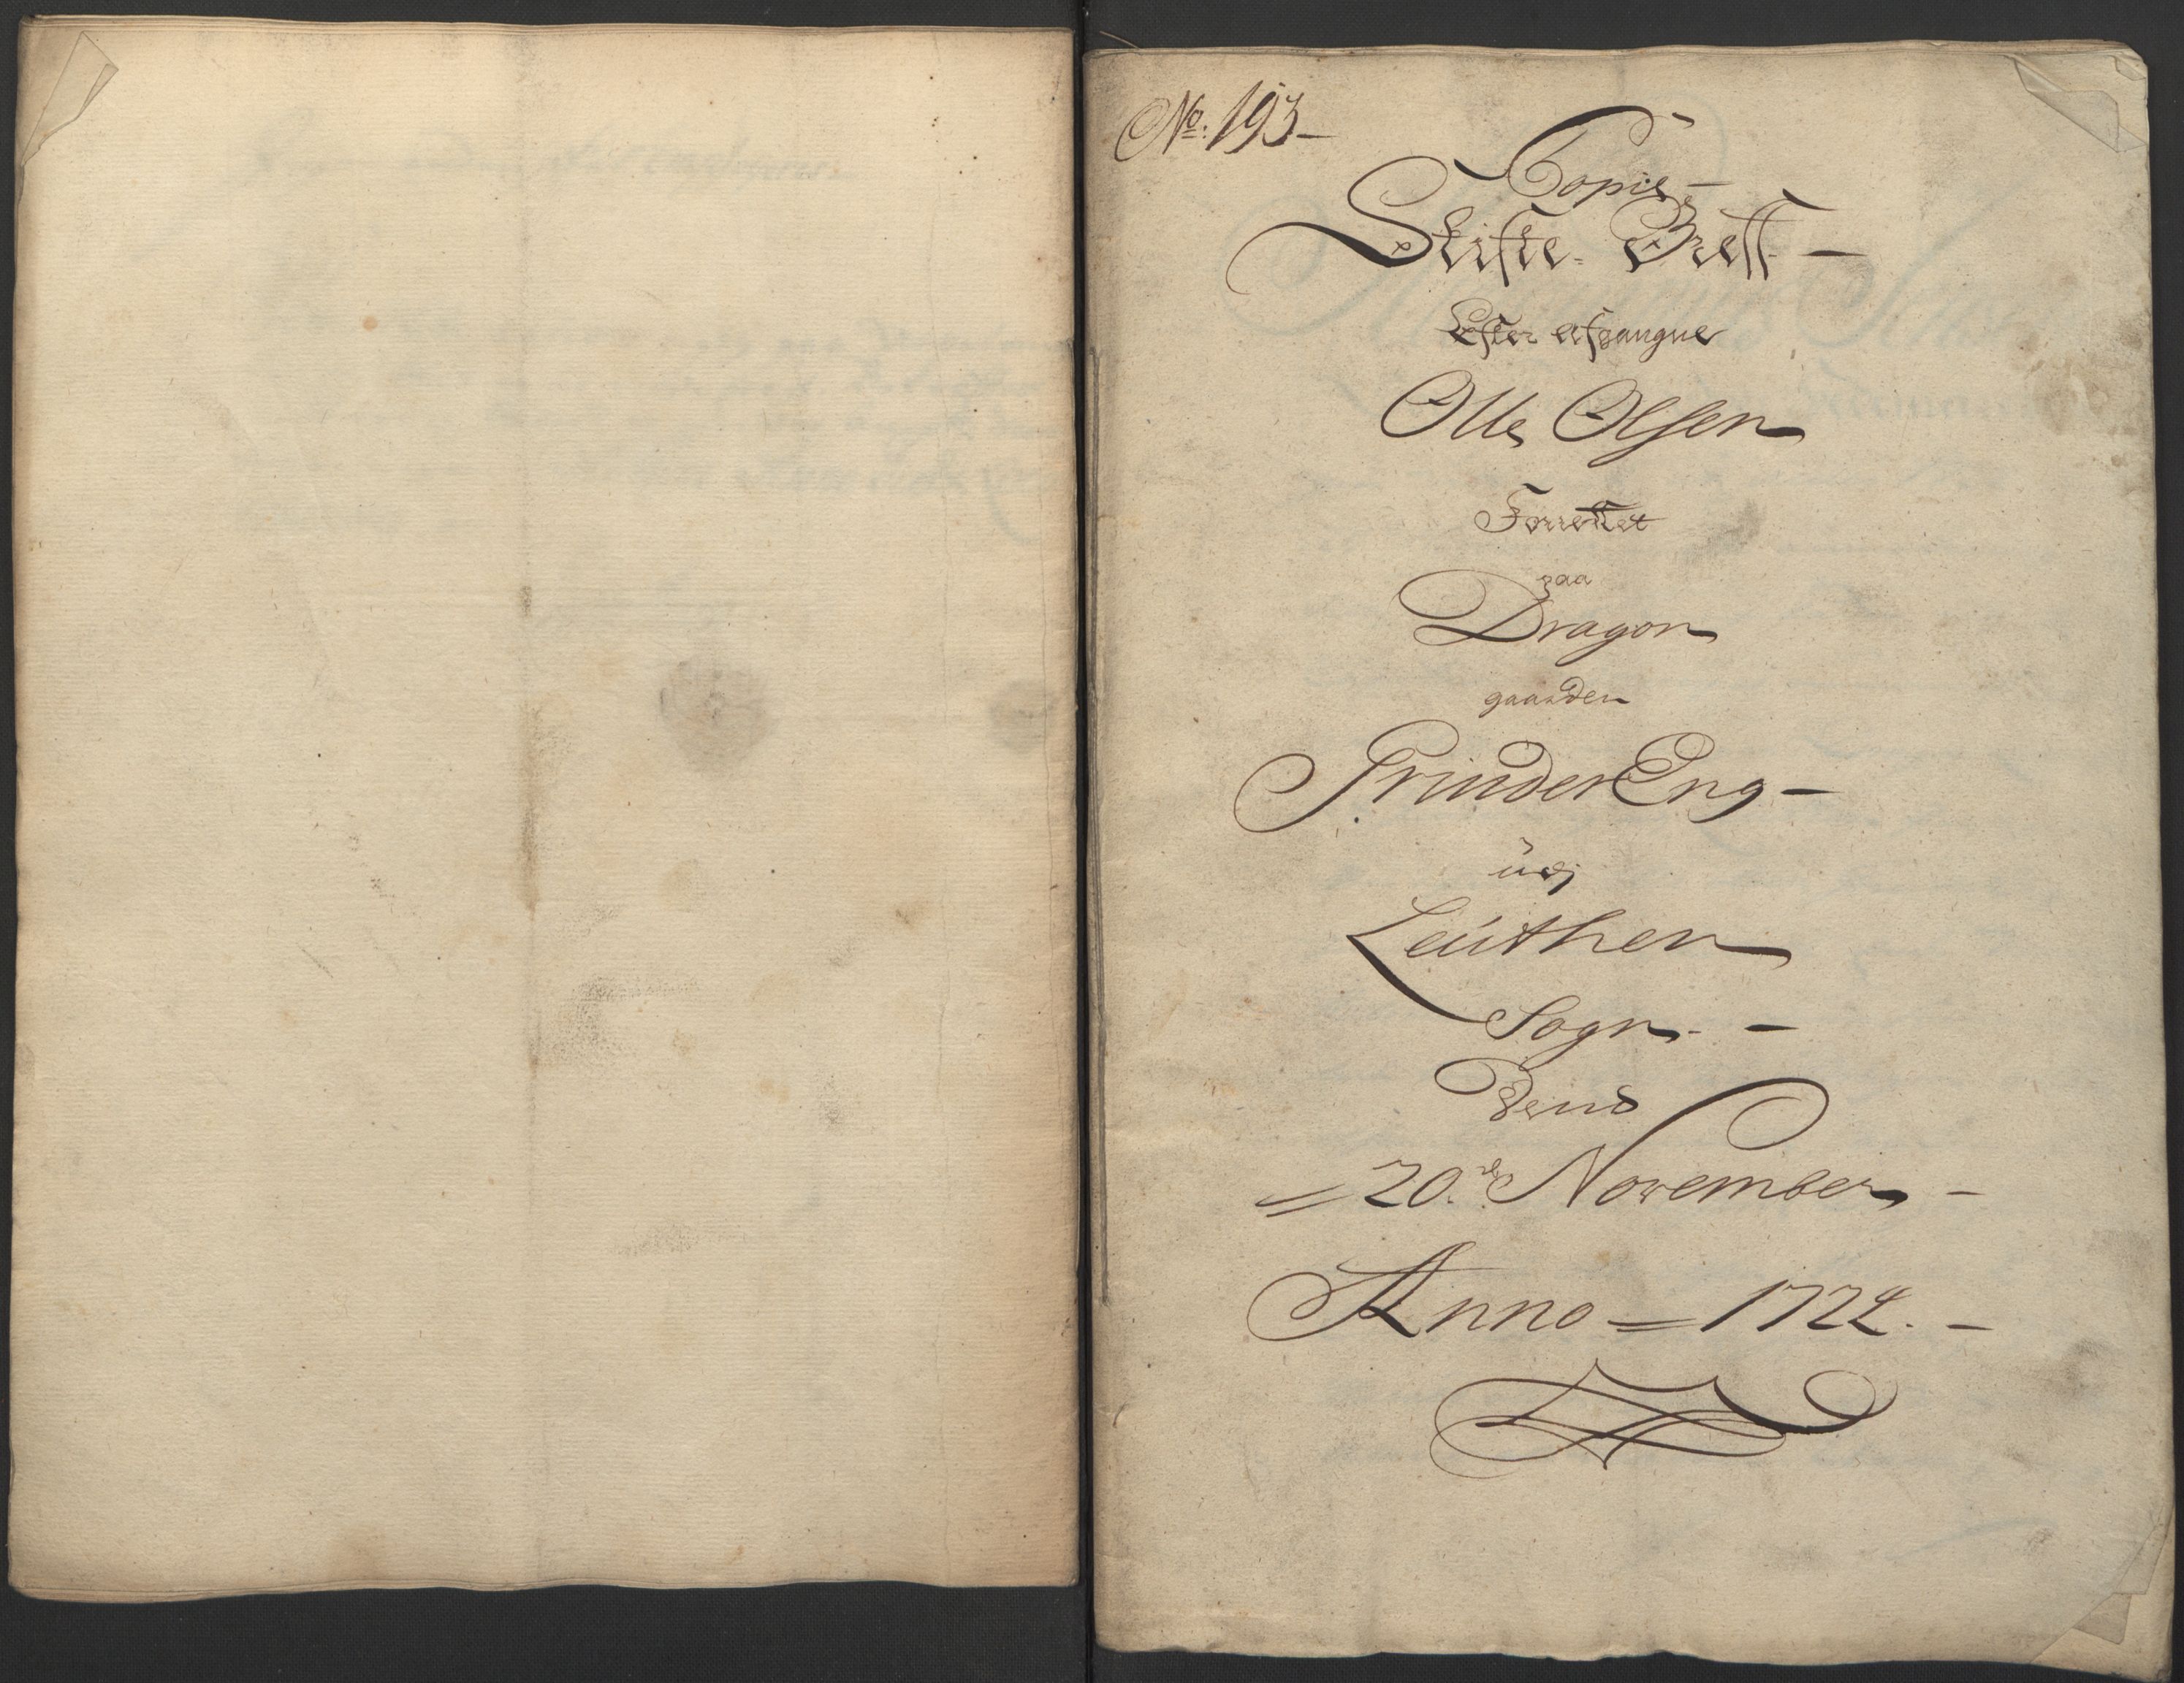 No: 193-
Copie-
Skifte-Breff-
Efter afgangne
Olle Olsen
Forrettet
paa
Dragon
gaarden
GrinderEng-
udj
Leuthen
Sogn.-
Dend
=20de November-
Anno=1724.-